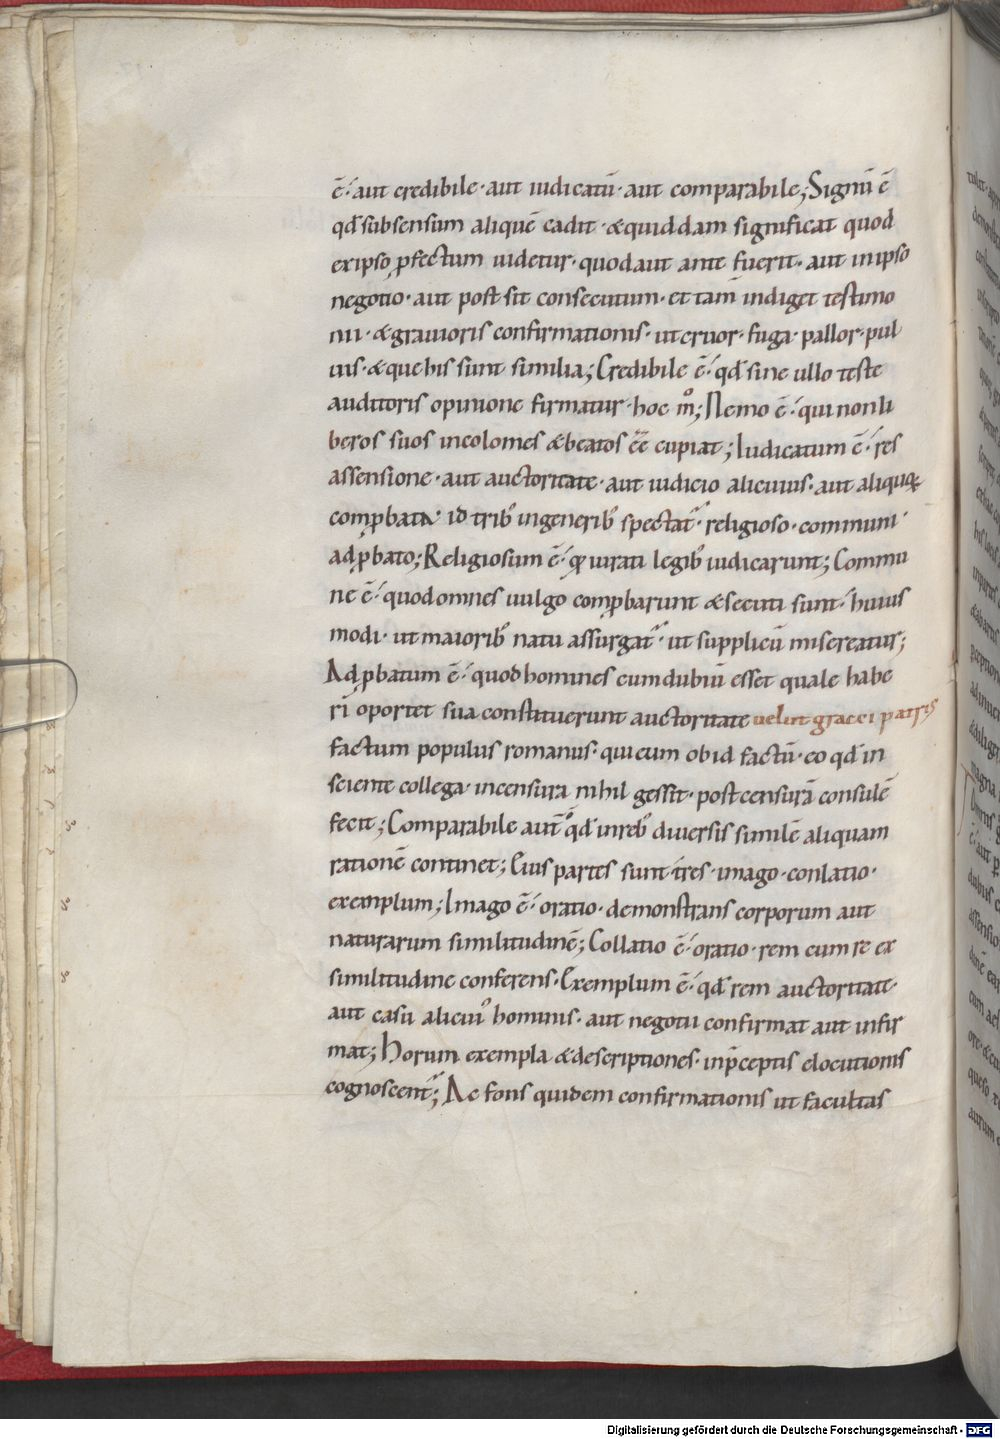 ē· aut credibile· aut iudicatū· aut comparabile; Signū ē
qđ subsensum aliquē cadit· &quiddam significat quod
exipso ꝑfectum uidetur· quodaut ante fuerit· aut inipso
negotio· aut post sit consecutum· et tam̄ indiget testimo
nii· &grauioris confirmationis· ut cruor· fuga· pallor· pul
uis· &quehis sunt similia; Credibile ē· qđ sine ullo teste
auditoris opinione firmatur· hoc mͦ; Nemo ē· qui nonli
beros suos incolomes &beatos ēē cupiat; Iudicatum ē· res
assensione· aut auctoritate· aut iudicio alicuius· aut aliquoꝝ
comꝓbata· id trib; ingenerib; spectat᷑· religioso· communi·
adꝓbato; Religiosum ē· qđ iurati legib; iudicarunt; Commu
ne ē· quodomnes uulgo comꝓbarunt &secuti sunt· huius
modi· ut maiorib; natu assurgat᷑· ut supplicū misereatur;
Adꝓbatum ē· quod homines cumdubiū esset quale habe
ri oportet sua constituerunt auctoritate uelut gracci patris
factum populus romanus· qui eum ob id factū· eo qđ in
sciente collega· incensura nihil gessit· post censurā consulē
fecit; Comparabile aut̄ qđ inreb; diuersis similē aliquam
rationē continet; Eius partes sunt tres· imago· conlatio·
exemplum; Imago ē· oratio· demonstrans corporum aut
naturarum similitudinē; Collatio ē· oratio· rem cum re ex
similitudine conferens· Exemplum ē· qđ rem auctoritate·
aut casu alicuiꝰ hominis· aut negotii confirmat aut infir
mat; Horum exempla &descriptiones· inp̄ceptis elocutionis
cognoscent᷑; Ac fons quidem confirmationis ut facultas
Digitalisierung gefördert durch die Deutsche Forschungsgemeinschaft - DFG